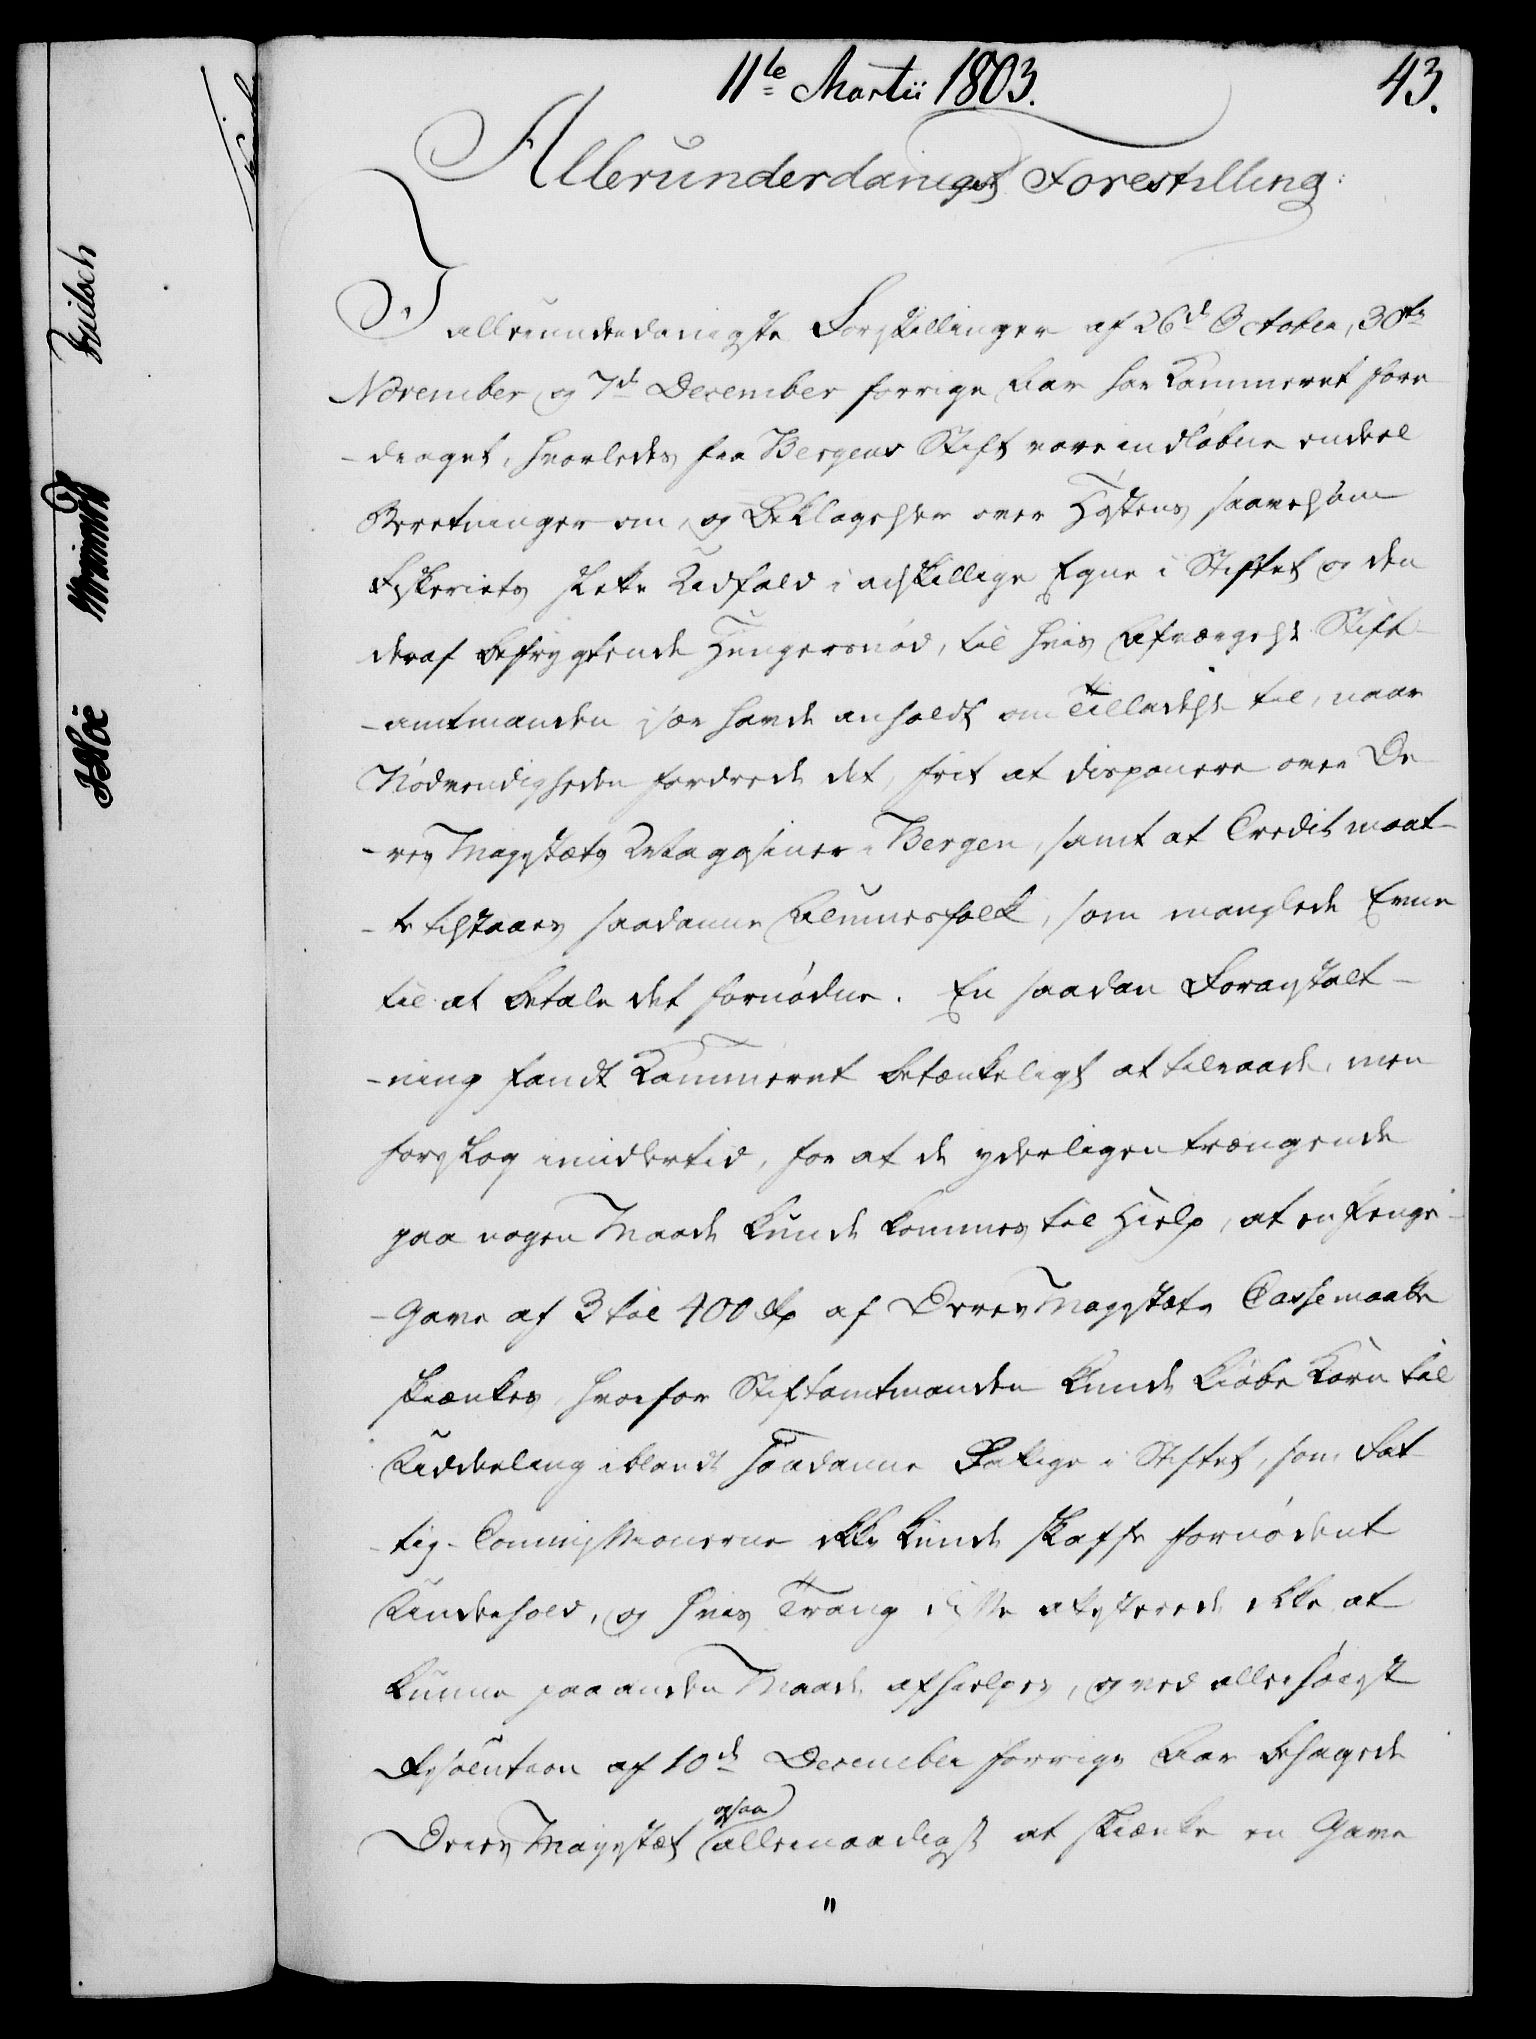 11te Martii 1803.
43.
Allerunderdanigst Forestilling:
I allerunderdanigste Forestillinger af 26d October, 30te
November og 7d December forrige Aar har Kammeret fore
-draget, hvorledes fra Bergens Stift vare indløbne endeel
Beretninger om, og Beklagelser over Høstens saavelsom
Fiskeriets slette Udfald i adskillige Egne i Stiftet og den
deraf befrygtende Hungersnød, til hvis Afværgelse Stift-
-amtmanden især havde anholdt om Tilladelse til, naar
Nødvendigheden fordrede det, frit at disponere over De-
-res Majestæts Magasiner i Bergen, samt at Credit maat-
-te tilstaaes saadanne Almuesfolk, som manglede Evne
til at betale det fornødne. En saadan Foranstalt-
-ning fandt Kammeret betænkeligt at tilraade, men
foreslog imidlertid, for at de yderligen trængende
paa nogen Maade kunde kommes til Hielp, at en Penge-
-Gave af 3 til 400 Rd af Deres Majestæts Casse maatte
skiænkes hvorfor Stiftamtmanden kunde kiøbe Korn til
Uddeeling iblandt saadanne Fattige i Stiftet, som Fat
-tig-Commissionerne ikke kunde skaffe fornødent
Underhold, og hvis Trang disse attesterede ikke at
kunne paa anden Maade afhielpes, og ved allerhøieste
Resolution af 10d December forrige Aar behagede
Deres Majestæt ogsaa allernaadigst at skiænke en Gave
"